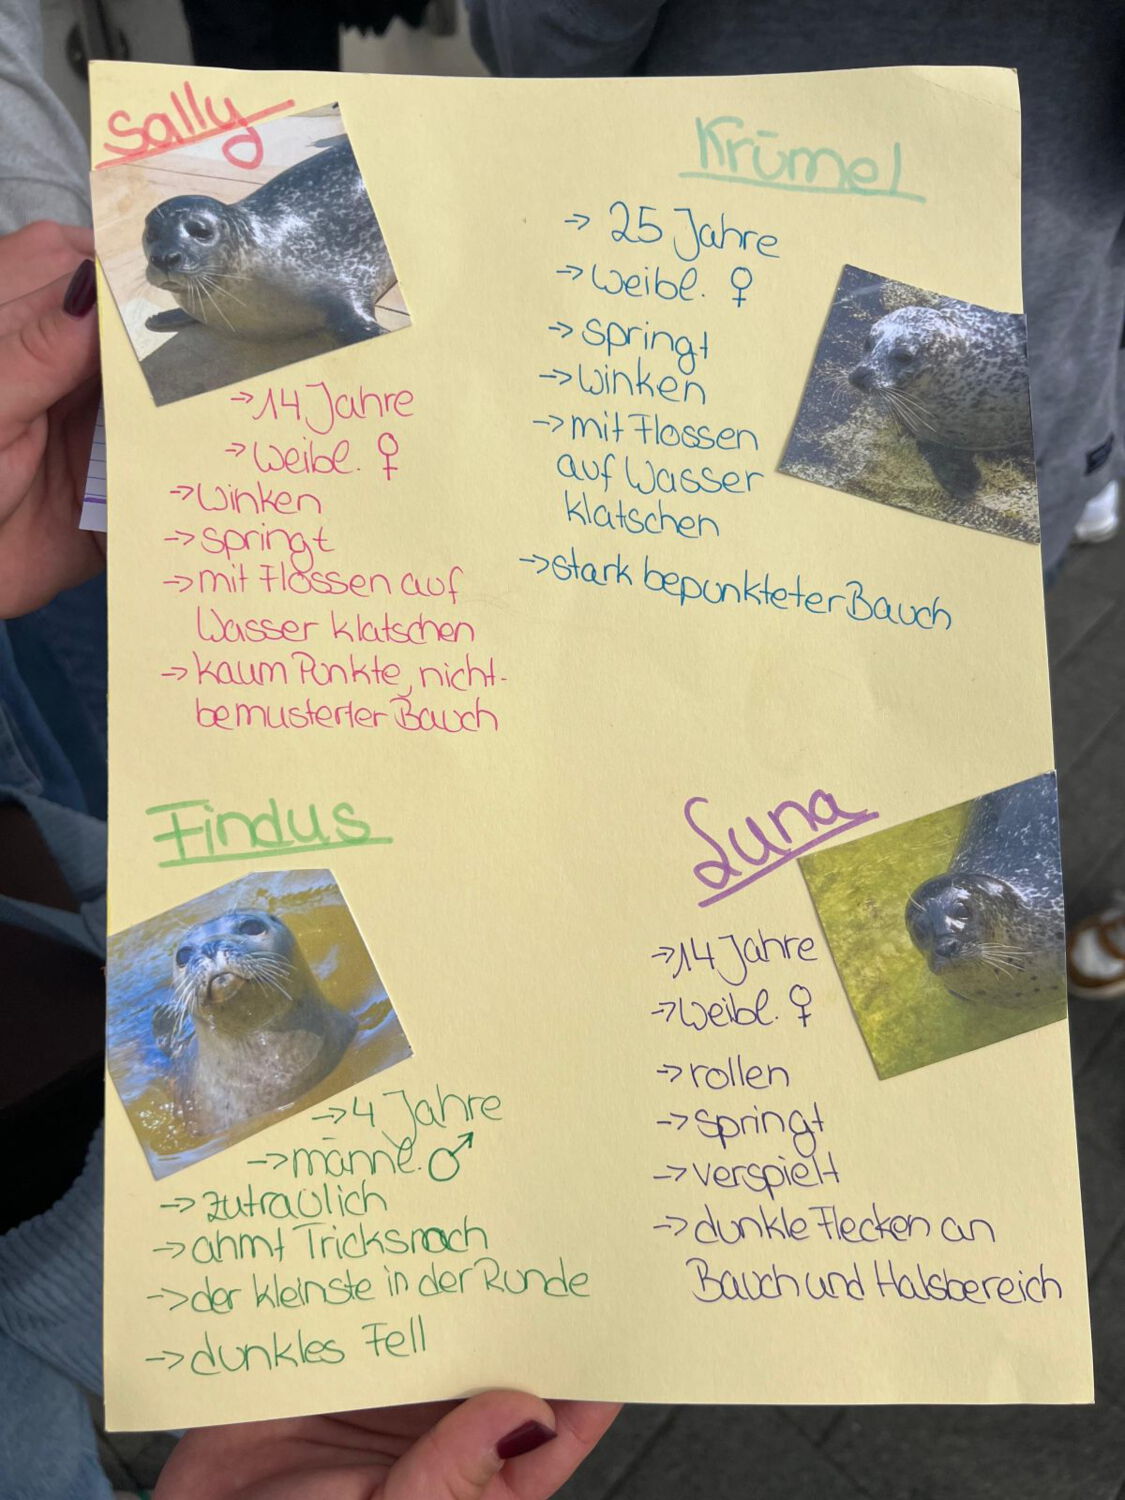 Sally
→ 14 Jahre
→ weibl. ♀
→ winken
→ springt
→ mit Flossen auf
Wasser klatschen
→ kaum Punkte, nicht-
bemusterter Bauch
Krümel
→ 25 Jahre
→ weibl. ♀
→ springt
→ winken
→ mit Flossen
auf Wasser
klatschen
→ stark bepunkteter Bauch
Findus
→ 4 Jahre
→ männl. ♂
→ zutraulich
→ ahmt Tricks nach
→ der kleinste in der Runde
→ dunkles Fell
Luna
→ 14 Jahre
→ weibl. ♀
→ rollen
→ springt
→ verspielt
→ dunkle Flecken an
Bauch und Halsbereich